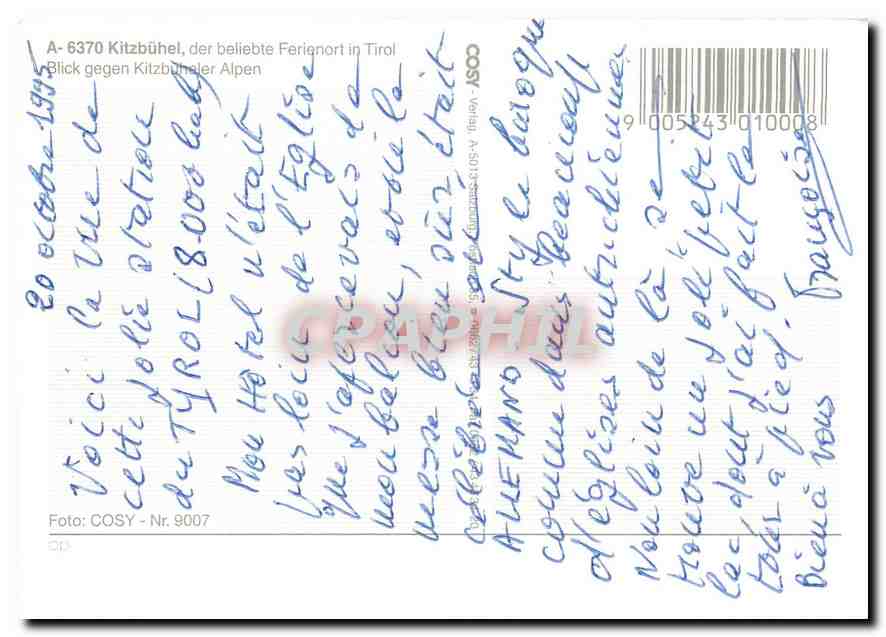 A- 6370 Kitzbühel, der beliebte Ferienort in Tirol
Blick gegen Kitzbüheler Alpen
COSY - Verlag, A-5013 Salzburg
9 005243 010008
20 octobre 1995
Voici la vue de
cette jolie station
du TYROL (8.000 hab)
Mon Hôtel n'était
pas loin de l'Eglise
que j'apercevais de
mon balcon, et où la
messe bien sûr était
célébrée en
ALLEMAND Style baroque
comme dans beaucoup
d'églises autrichiennes
Non loin de là se
trouve un joli petit
lac dont j'ai fait le
tour à pied.
Bien à vous
Françoise
CPAPHIL
Foto: COSY - Nr. 9007